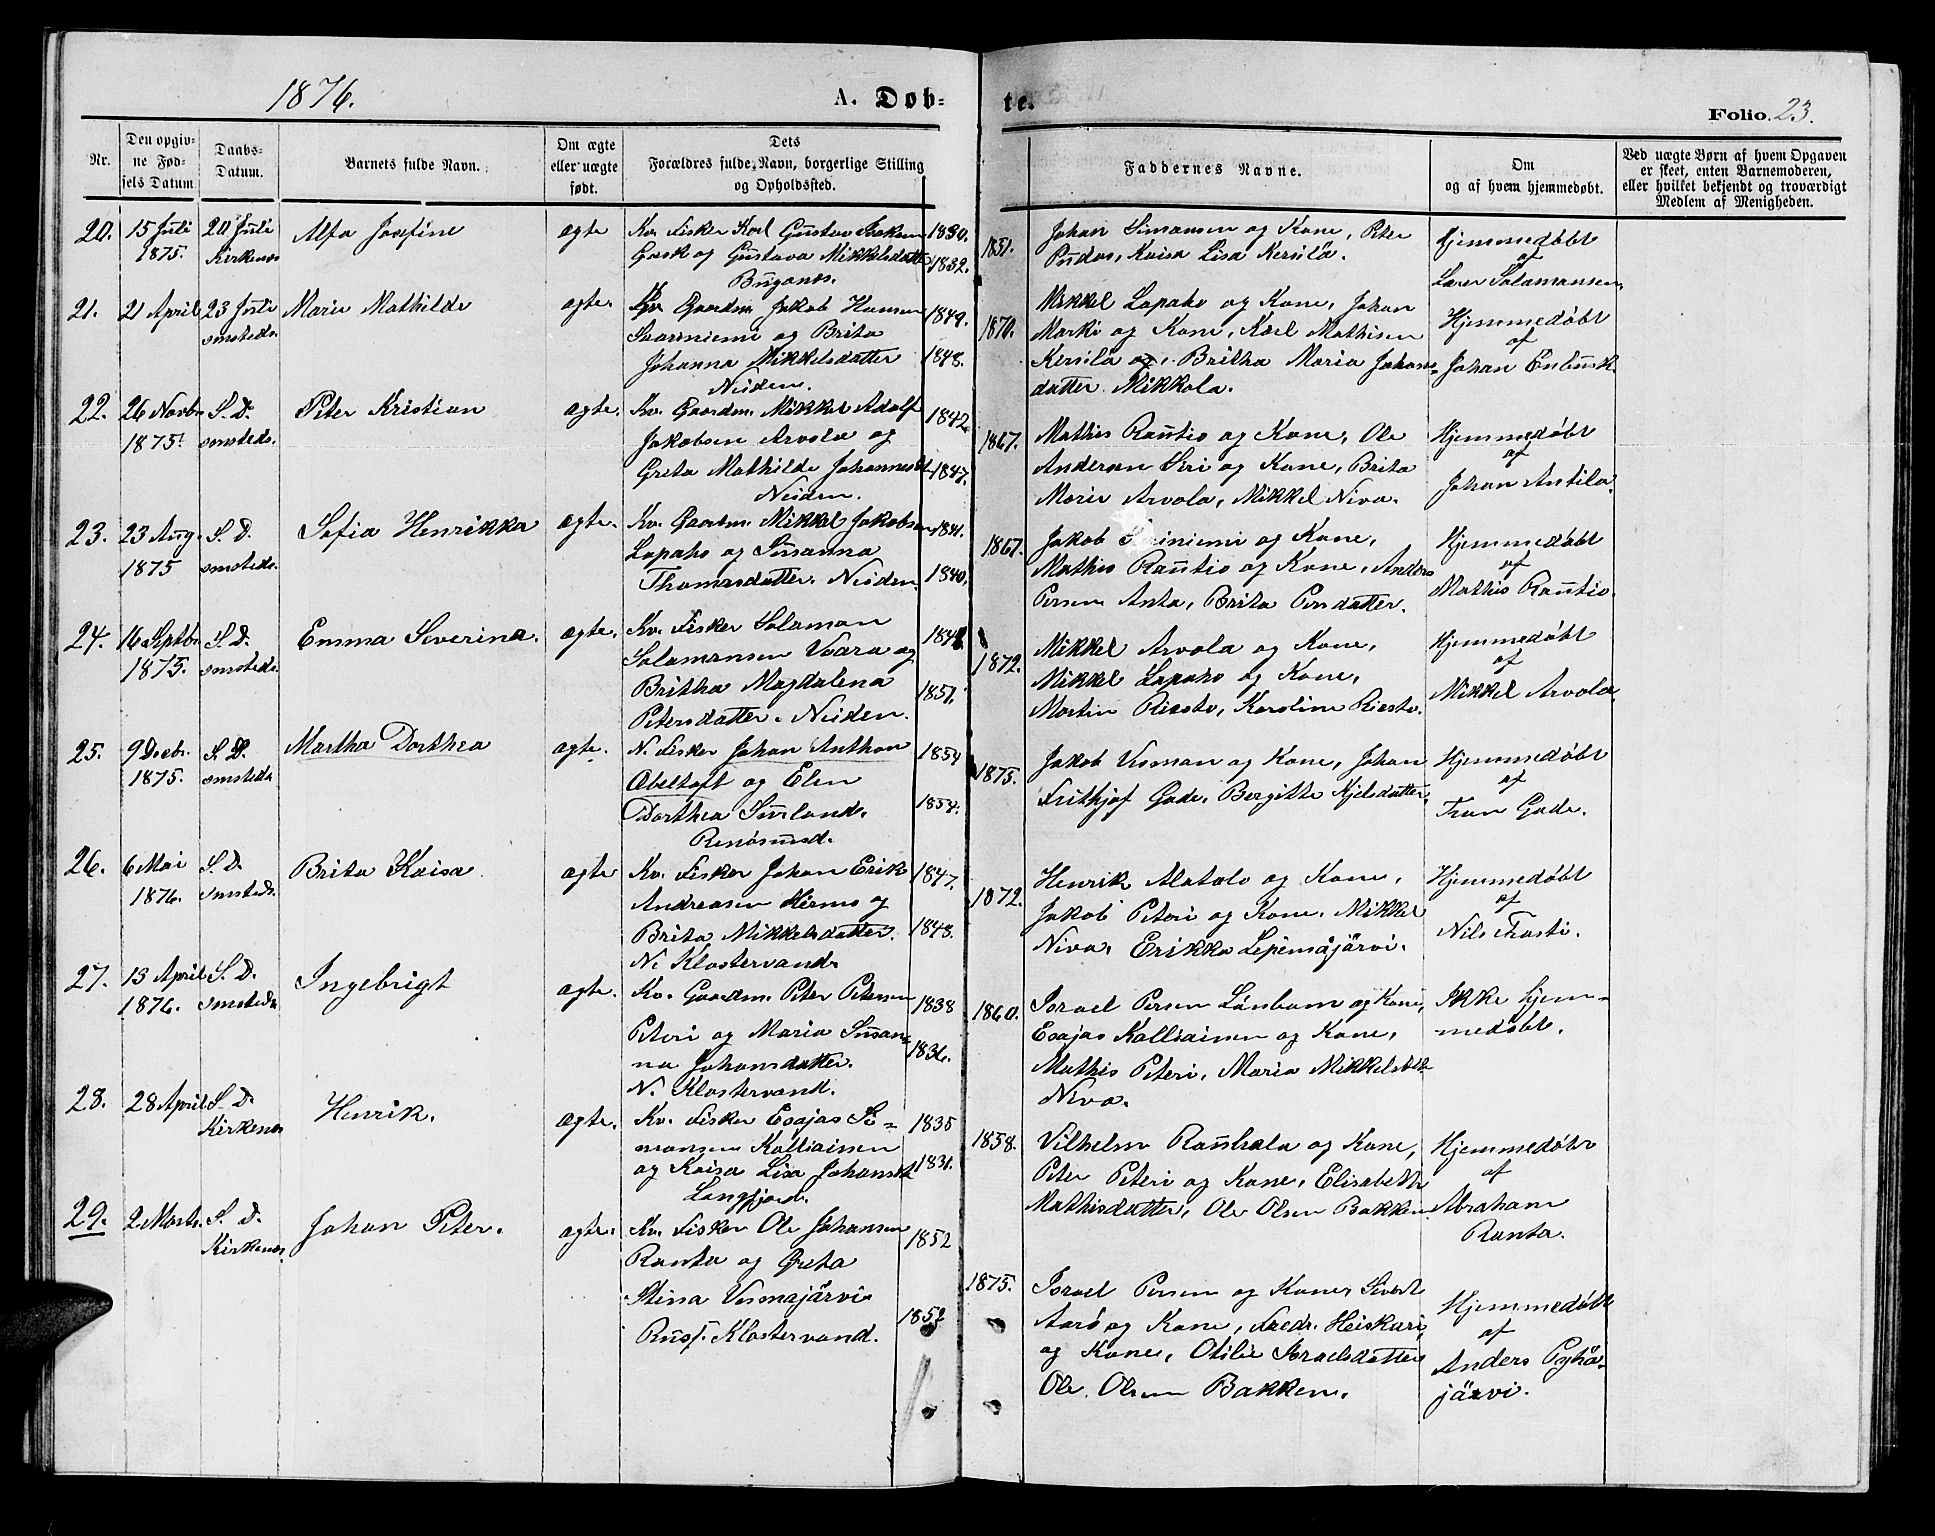 1876.
A. Døb-
te.
Folio. 23.
Nr.
Den opgiv-
ne Fød-
sels Datum
Daabs-
Datum.
Barnets fulde Navn.
Om ægte
eller uægte
født.
Dets
Forældres fulde Navn, borgerlige Stilling
og Opholdssted.
Faddernes Navne.
Om
og af hvem hjemmedøbt.
Ved uægte Børn af hvem Opgaven
er skeet, enten Barnemoderen,
eller hvilket bekjendt og troværdigt
Medlem af Menigheden.
20.
15 Juli
1875.
20 Juli
Kirkenæs
Alfa Josefine
ægte
Kv. Fisker Karl Gustav
og Gustava Mikkelsdatter
Bugønes.
1830.
1832.
1851.
Johan Simonsen og Kone, Peter
Pudas, Kaisa Lisa Kerälä.
Hjemmedøbt
af
Lærer Salamansen.
21.
21 April
23 Juli
smsteds.
Marie Mathilde
ægte.
Kv. Gaardm. Jakob Hansen
og Brita
Johanna Mikkelsdatter
Neiden.
1849.
1848.
1870.
Mikkel Lapaho og Kone, Johan
Marki og Kone, Karl Mathisen
Kerula og Britha Maria Johans-
datter Mikkola.
Hjemmedøbt
af
Johan Enbusk.
22.
26 Novbr
1875.
S. D.
smsteds.
Peter Kristian
ægte.
Kv. Gaardm. Mikkel Adolf
Jakobsen Arvola og
Greta Mathilde Johannesdt
Neiden.
1842
1847.
1867.
Mathis Rautio og Kone, Ole
Andersen Siri og Kone, Brita
Marie Arvola, Mikkel Niva.
Hjemmedøbt
af
Johan Antila.
23.
23 Aug.
1875
S. D.
smsteds.
Sofia Henrikka
ægte.
Kv. Gaardm. Mikkel Jakobsen
Lapaho og Susanna
Thomasdatter. Neiden.
1841.
1840.
1867.
Jakob og Kone,
Mathis Rautio og Kone, Anders
Persen Anta, Brita Persdatter.
Hjemmedøbt
af
Mathis Rautio.
24.
16 Septbr
1875.
S. D.
smsteds.
Emma Severina.
ægte.
Kv. Fisker Salamon
Salamonsen Vaara og
Britha Magdalena
Petersdatter. Neiden.
1848
1851.
1872.
Mikkel Arvola og Kone,
Mikkel Lapaho og Kone,
Martin Riesto, Karoline Riesto.
Hjemmedøbt
af
Mikkel Arvola.
25.
9 Decbr.
1875.
S. D.
smsteds
Martha Dorthea
ægte.
N. Fisker Johan Anthon
Abeltoft og Elen
Dorthea Suuland.
Renøsund.
1854
1854.
1875.
Jakob Vesman og Kone, Johan
Frithjof Gade, Bergitte Kjelsdatter.
Hjemmedøbt
af
Fran Gade.
26.
6 Mai
1876.
S. D.
smsteds.
Brita Kaisa
ægte
Kv. Fisker Johan Erik
Andreasen Hirmo og
Brita Mikkelsdatter.
N. Klostervand.
1847.
1848.
1872.
Henrik Alatalo og Kone,
Jakob Peteri og Kone, Mikkel
Niva, Erikka Lepimäjärvi.
Hjemmedøbt
af
Nils Frosti.
27.
13 April
1876.
S. D.
smsteds
Ingebrigt
ægte.
Kv. Gaardm. Peter Petersen
Peteri og Maria Susan-
na Johansdatter.
N. Klostervand.
1838
1836.
1860.
Israel Persen Lånbom og Kone,
Esajas Kalliainen og Kone,
Mathis Peteri, Maria Mikkelsdtr
Niva.
Ikke hjem-
medøbt.
28.
28 April
S. D.
Kirkenæs
Henrik.
ægte.
Kv. Fisker Esajas Si-
monsen Kalliainen
og Kaisa Lisa Johansdt
Langfjord.
1835
1831.
1858.
Vilhelm Rauhala og Kone,
Peter Peteri og Kone, Elisabeth
Mathisdatter, Ole Olsen Bakken.
Hjemmedøbt
af
Abraham
Ranta.
29.
2 Marts.
S. D.
Kirkenæs.
Johan Peter.
ægte.
Kv. Fisker Ole Johansen
Ranta og Greta
Stina Vesmajärvi
Russ. Klostervand.
1852
1852
1875.
Israel Persen og Kone, Sivert
Aarø og Kone, Fredr. Heiskari
og Kone, Otilie Israelsdatter
Ole Olsen Bakken.
Hjemmedøbt
af
Anders Pyhä-
järvi.